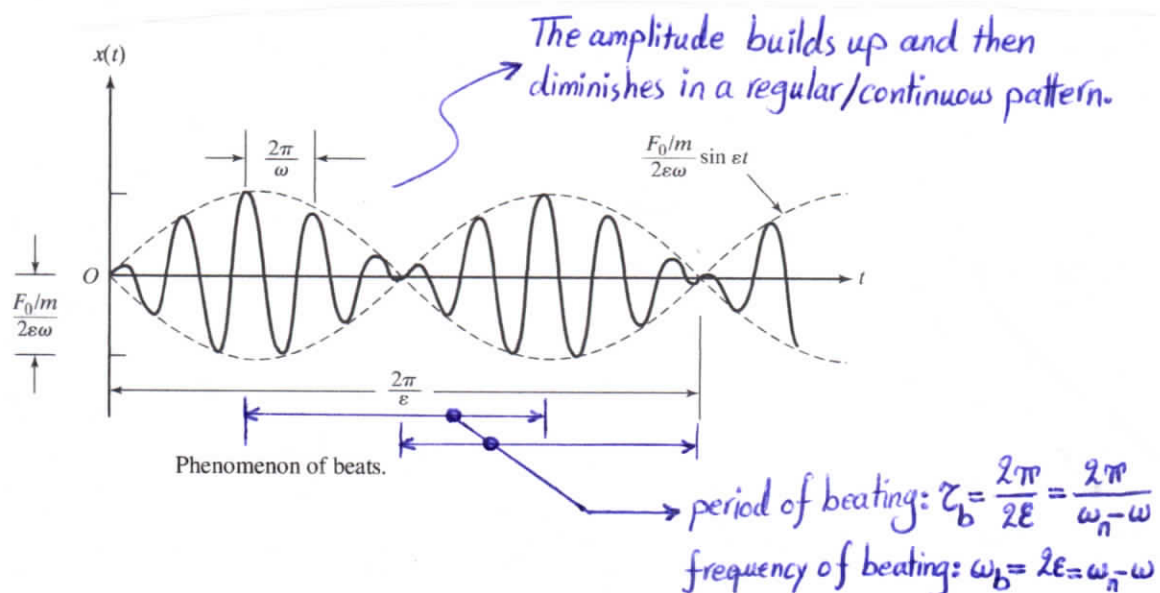 The amplitude builds up and then
diminishes in a regular/continuous pattern.
x(t)
2π/ω
F₀/m/2εω sin εt
O
t
F₀/m/2εω
2π/ε
Phenomenon of beats.
period of beating: τ_b = 2π/2ε = 2π/ω_n-ω
frequency of beating: ω_b = 2ε = ω_n-ω